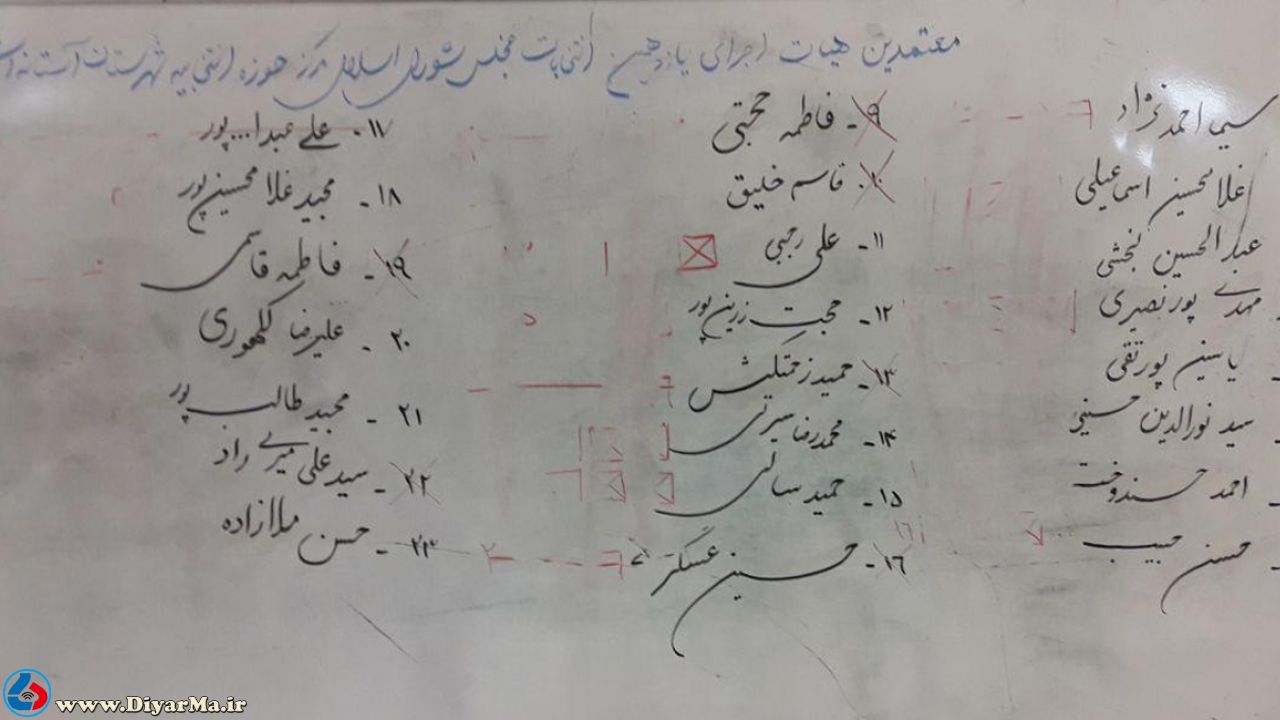 معتمدین هیات اجرایی یازدهمین انتخابات مجلس شورای اسلامی مرکز حوزه انتخابیه شهرستان آستانه
سیما احمدنژاد
غلامحسین اسماعیلی
عبدالحسین بخشی
مهدی پورنصیری
یاسین پورتقی
سید نورالدین حسینی
احمد حسندوخت
حسن حبیب
۹- فاطمه حجتی
۱۰- قاسم خلیق
۱۱- علی رجبی
۱۲- حجت زرین پور
۱۳- حمید زحمتکش
۱۴- محمدرضا سیرتی
۱۵- حمید سالمی
۱۶- حسین عسگری
۱۷- علی عبدا...پور
۱۸- مجید غلامحسین پور
۱۹- فاطمه قاسمی
۲۰- علیرضا کلهوری
۲۱- مجید طالب پور
۲۲- سید علی میری راد
۲۳- حسن ملازاده
www.DiyarMa.ir